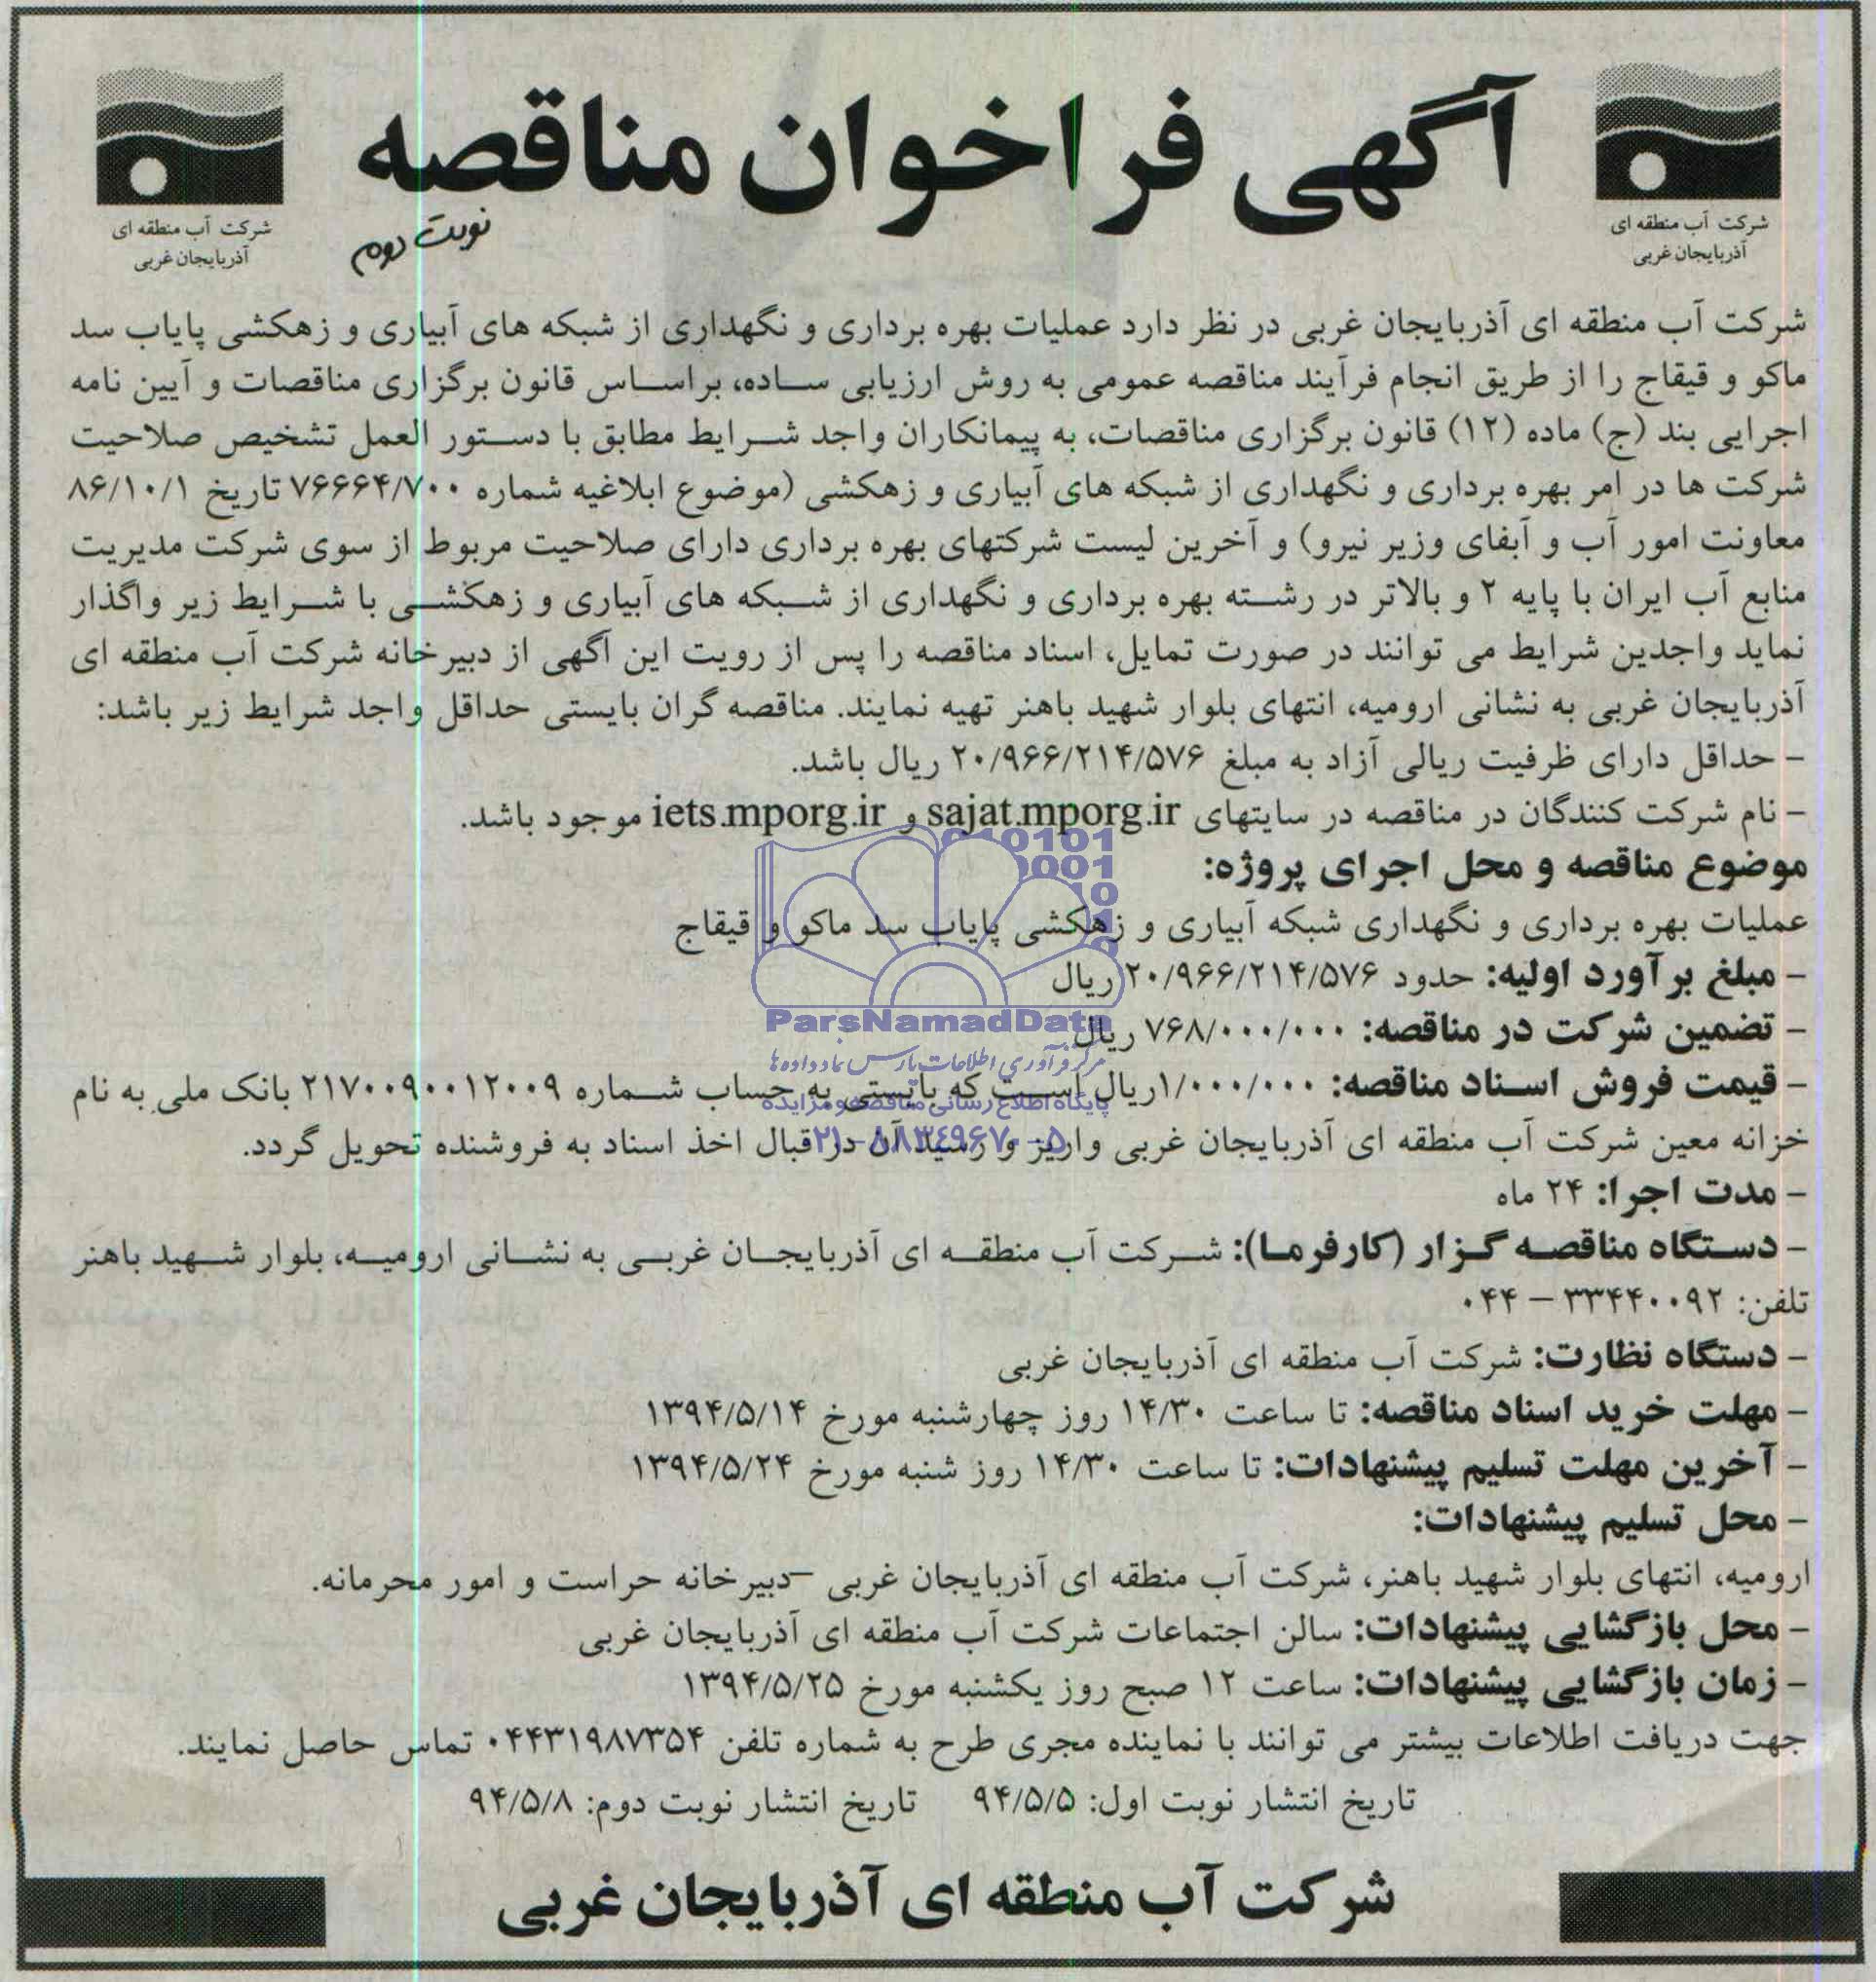 آگهی فراخوان مناقصه
نوبت دوم
شرکت آب منطقه ای
آذربایجان غربی
شرکت آب منطقه ای
آذربایجان غربی
شرکت آب منطقه ای آذربایجان غربی در نظر دارد عملیات بهره برداری و نگهداری از شبکه های آبیاری و زهکشی پایاب سد
ماکو و قیقاج را از طریق انجام فرآیند مناقصه عمومی به روش ارزیابی ساده، براساس قانون برگزاری مناقصات و آیین نامه
اجرایی بند (ج) ماده (۱۲) قانون برگزاری مناقصات، به پیمانکاران واجد شرایط مطابق با دستور العمل تشخیص صلاحیت
شرکت ها در امر بهره برداری و نگهداری از شبکه های آبیاری و زهکشی (موضوع ابلاغیه شماره ۷۶۶۶۴/۷۰۰ تاریخ ۸۶/۱۰/۱
معاونت امور آب و آبفای وزیر نیرو) و آخرین لیست شرکتهای بهره برداری دارای صلاحیت مربوط از سوی شرکت مدیریت
منابع آب ایران با پایه ۲ و بالاتر در رشته بهره برداری و نگهداری از شبکه های آبیاری و زهکشی با شرایط زیر واگذار
نماید واجدین شرایط می توانند در صورت تمایل، اسناد مناقصه را پس از رویت این آگهی از دبیرخانه شرکت آب منطقه ای
آذربایجان غربی به نشانی ارومیه، انتهای بلوار شهید باهنر تهیه نمایند. مناقصه گران بایستی حداقل واجد شرایط زیر باشد:
- حداقل دارای ظرفیت ریالی آزاد به مبلغ ۲۰/۹۶۶/۲۱۴/۵۷۶ ریال باشد.
- نام شرکت کنندگان در مناقصه در سایتهای sajat.mporg.ir و iets.mporg.ir موجود باشد.
موضوع مناقصه و محل اجرای پروژه:
عملیات بهره برداری و نگهداری شبکه آبیاری و زهکشی پایاب سد ماکو و قیقاج
- مبلغ برآورد اولیه: حدود ۲۰/۹۶۶/۲۱۴/۵۷۶ ریال
- تضمین شرکت در مناقصه: ۷۶۸/۰۰۰/۰۰۰ ریال
- قیمت فروش اسناد مناقصه: ۱/۰۰۰/۰۰۰ریال است که بایستی به حساب شماره ۲۱۷۰۰۹۰۰۱۲۰۰۹ بانک ملی به نام
خزانه معین شرکت آب منطقه ای آذربایجان غربی واریز و رسید آن در قبال اخذ اسناد به فروشنده تحویل گردد.
- مدت اجرا: ۲۴ ماه
- دستگاه مناقصه گزار (کارفرما): شرکت آب منطقه ای آذربایجان غربی به نشانی ارومیه، بلوار شهید باهنر
تلفن: ۳۳۴۴۰۰۹۲ – ۰۴۴
- دستگاه نظارت: شرکت آب منطقه ای آذربایجان غربی
- مهلت خرید اسناد مناقصه: تا ساعت ۱۴/۳۰ روز چهارشنبه مورخ ۱۳۹۴/۵/۱۴
- آخرین مهلت تسلیم پیشنهادات: تا ساعت ۱۴/۳۰ روز شنبه مورخ ۱۳۹۴/۵/۲۴
- محل تسلیم پیشنهادات:
ارومیه، انتهای بلوار شهید باهنر، شرکت آب منطقه ای آذربایجان غربی –دبیرخانه حراست و امور محرمانه.
- محل بازگشایی پیشنهادات: سالن اجتماعات شرکت آب منطقه ای آذربایجان غربی
- زمان بازگشایی پیشنهادات: ساعت ۱۲ صبح روز یکشنبه مورخ ۱۳۹۴/۵/۲۵
جهت دریافت اطلاعات بیشتر می توانند با نماینده مجری طرح به شماره تلفن ۰۴۴۳۱۹۸۷۳۵۴ تماس حاصل نمایند.
تاریخ انتشار نوبت اول: ۹۴/۵/۵ تاریخ انتشار نوبت دوم: ۹۴/۵/۸
شرکت آب منطقه ای آذربایجان غربی
ParsNamadData
مرکز فرآوری اطلاعات پارس نماد داده ها
پایگاه اطلاع رسانی مناقصه و مزایده
۰۲۱-۸۸۳۴۹۶۷۰-۵